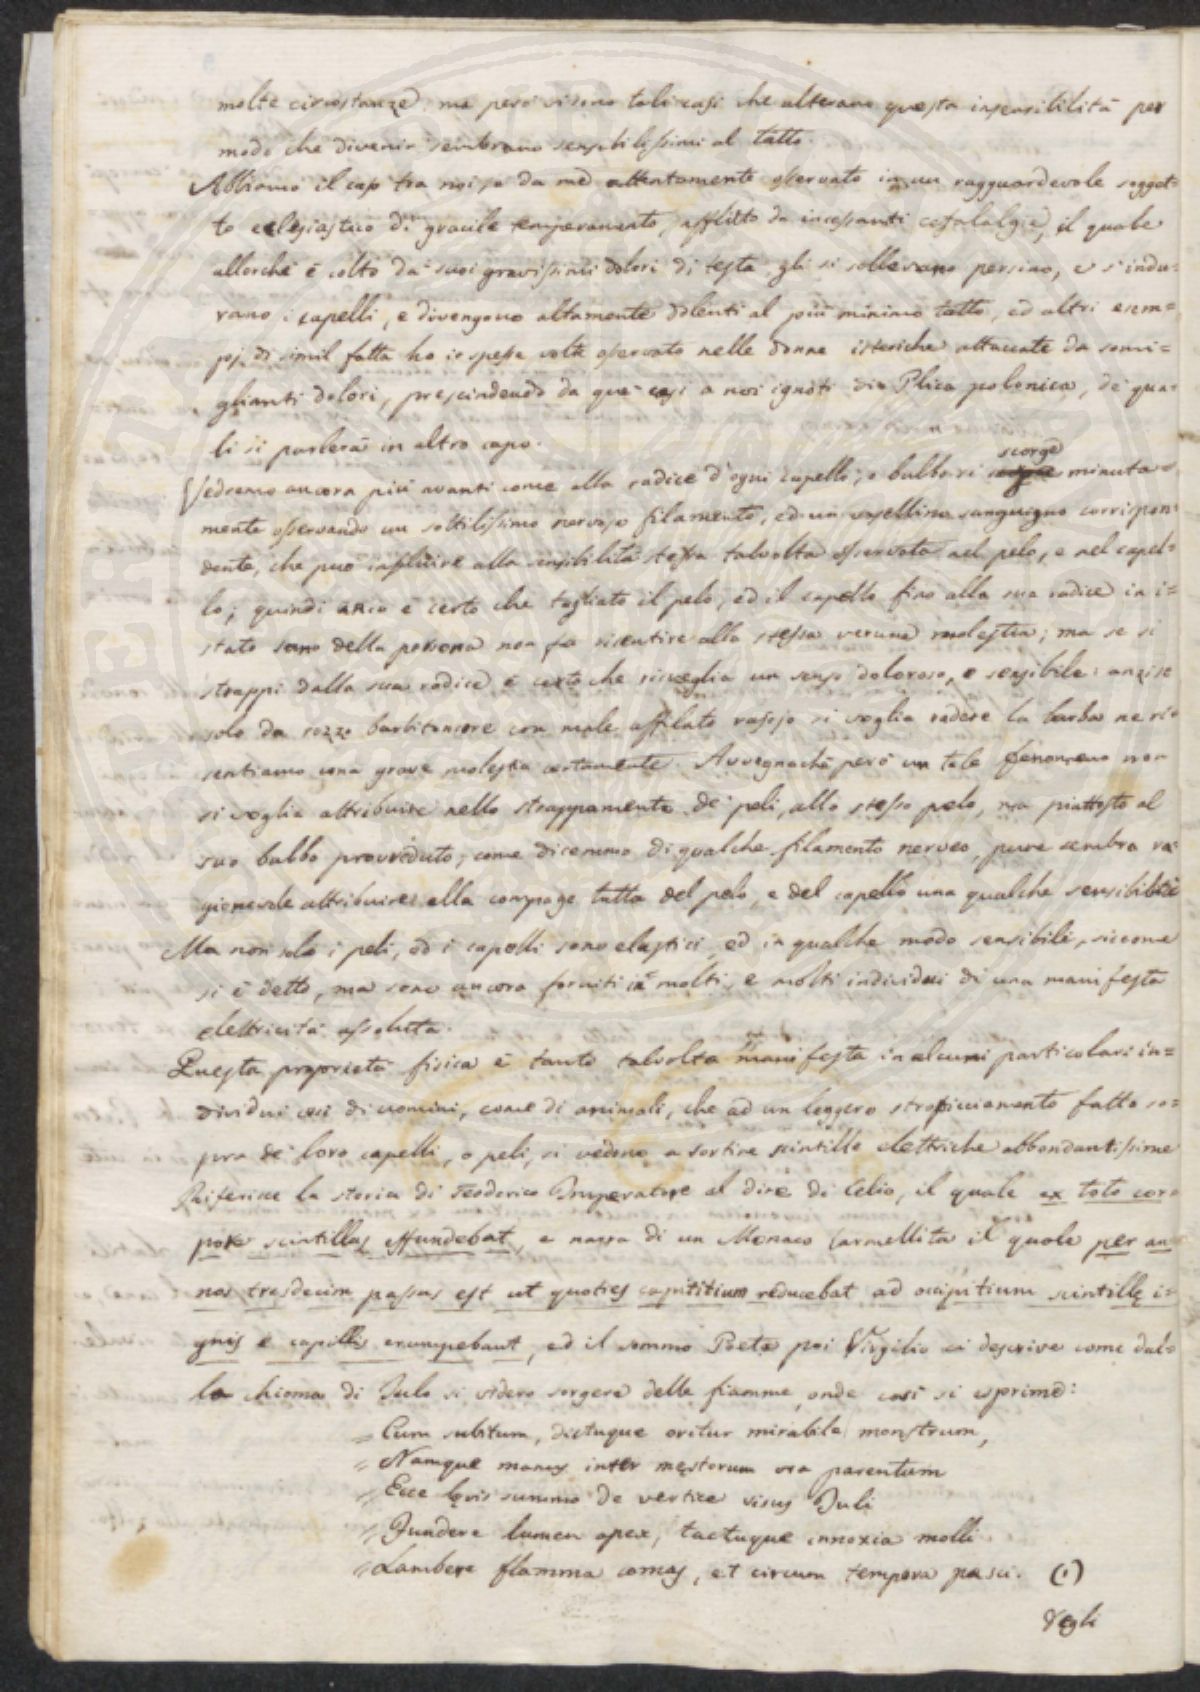 molte circostanze, ma però vi sono tali casi che alterano questa insensibilità per
modo che divenir sembrano sensibilissimi al tatto.
Abbiamo il caso tra noi, e da me attentamente osservato in un ragguardevole sogget=
to eclesiastico di gracile temperamento, afflitto da incessanti cefalalgie, il quale
allorchè è colto da' suoi gravissimi dolori di testa, gli si sollevano persino, e s'indu=
rano i capelli, e divengono altamente dolenti al più minimo tatto, ed altri esem=
pj di simil fatta ho io spesse volte osservato nelle donne isteriche attaccate da somi=
glianti dolori, prescindendo da que' casi a noi ignoti di Plica polonica, de' qua=
li si parlerà in altro capo.
Vedremo ancora più avanti come alla radice d'ogni capello, o bulbo si scorge minuta=
mente osservando un sottilissimo nervoso filamento, ed un vasellino sanguigno corrispon=
dente, che può influire alla sensibilità stessa talvolta osservata nel pelo, e nel capel=
lo; quindi anco è certo che tagliato il pelo, ed il capello fino alla sua radice in i=
stato sano della persona non fa risentire alla stessa veruna molestia; ma se si
strappi dalla sua radice è certo che risveglia un senso doloroso, e sensibile: anzi se
solo da rozzo barbitonsore con male affilato rasojo si voglia radere la barba ne ri=
sentiamo una grave molestia certamente. Avvegnachè però un tale fenomeno non
si voglia attribuire nello strappamento de' peli, allo stesso pelo, ma piuttosto al
suo bulbo provveduto, come dicemmo di qualche filamento nerveo, pure sembra ra=
gionevole attribuire alla compage tutta del pelo, e del capello una qualche sensibilità
Ma non solo i peli, ed i capelli sono elastici, ed in qualche modo sensibili, siccome
si è detto, ma sono ancora forniti in molti, e molti individui di una manifesta
elettricità assoluta.
Questa proprietà fisica è tanto talvolta manifesta in alcuni particolari in=
dividui così di uomini, come di animali, che ad un leggero stropicciamento fatto so=
pra de' loro capelli, o peli, si vedono a sortire scintille elettriche abbondantissime
Riferisce la storia di Teodorico Imperatore al dire di Celio, il quale ex toto cor=
pore scintillas effundebat, e narra di un Monaco Carmellita il quale per an=
nos tresdecim passus est ut quoties capititium reducebat ad occipitium scintillę i=
gnis e capillis erumpebant, ed il sommo Poeta poi Virgilio ci descrive come dal=
la chioma di Julo si videro sorgere delle fiamme, onde così si esprime:
= Cum subitum, dictuque oritur mirabile monstrum,
= Namque manus inter męstorum ora parentum
= Ecce lęvis summo de vertice visus Juli
= Fundere lumen apex, tactuque innoxia molli
= Lambere flamma comas, et circum tempora pasci. (1)
Negli